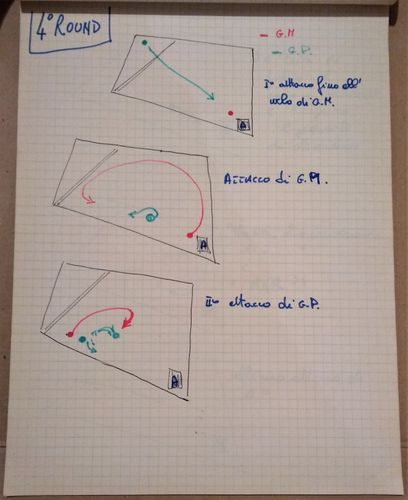 4° ROUND
- G.M
- G.P.
I° attacco fino all'
urlo di G.M.
A
ATTACCO di G.M.
A
II° attacco di G.P.
A